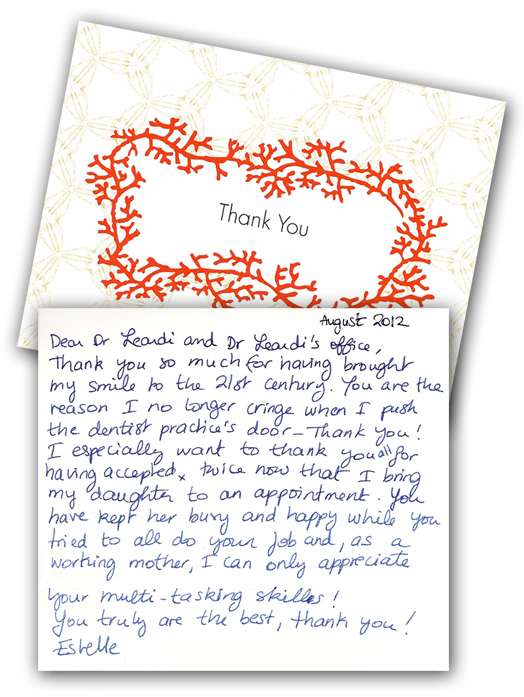 Thank You
August 2012
Dear Dr Leardi and Dr Leardi's office,
Thank you so much for having brought
my smile to the 21st century. You are the
reason I no longer cringe when I push
the dentist practice's door - Thank you!
I especially want to thank you all for
having accepted, twice now that I bring
my daughter to an appointment. You
have kept her busy and happy while you
tried to all do your job and, as a
working mother, I can only appreciate
your multi-tasking skills!
You truly are the best, thank you!
Estelle